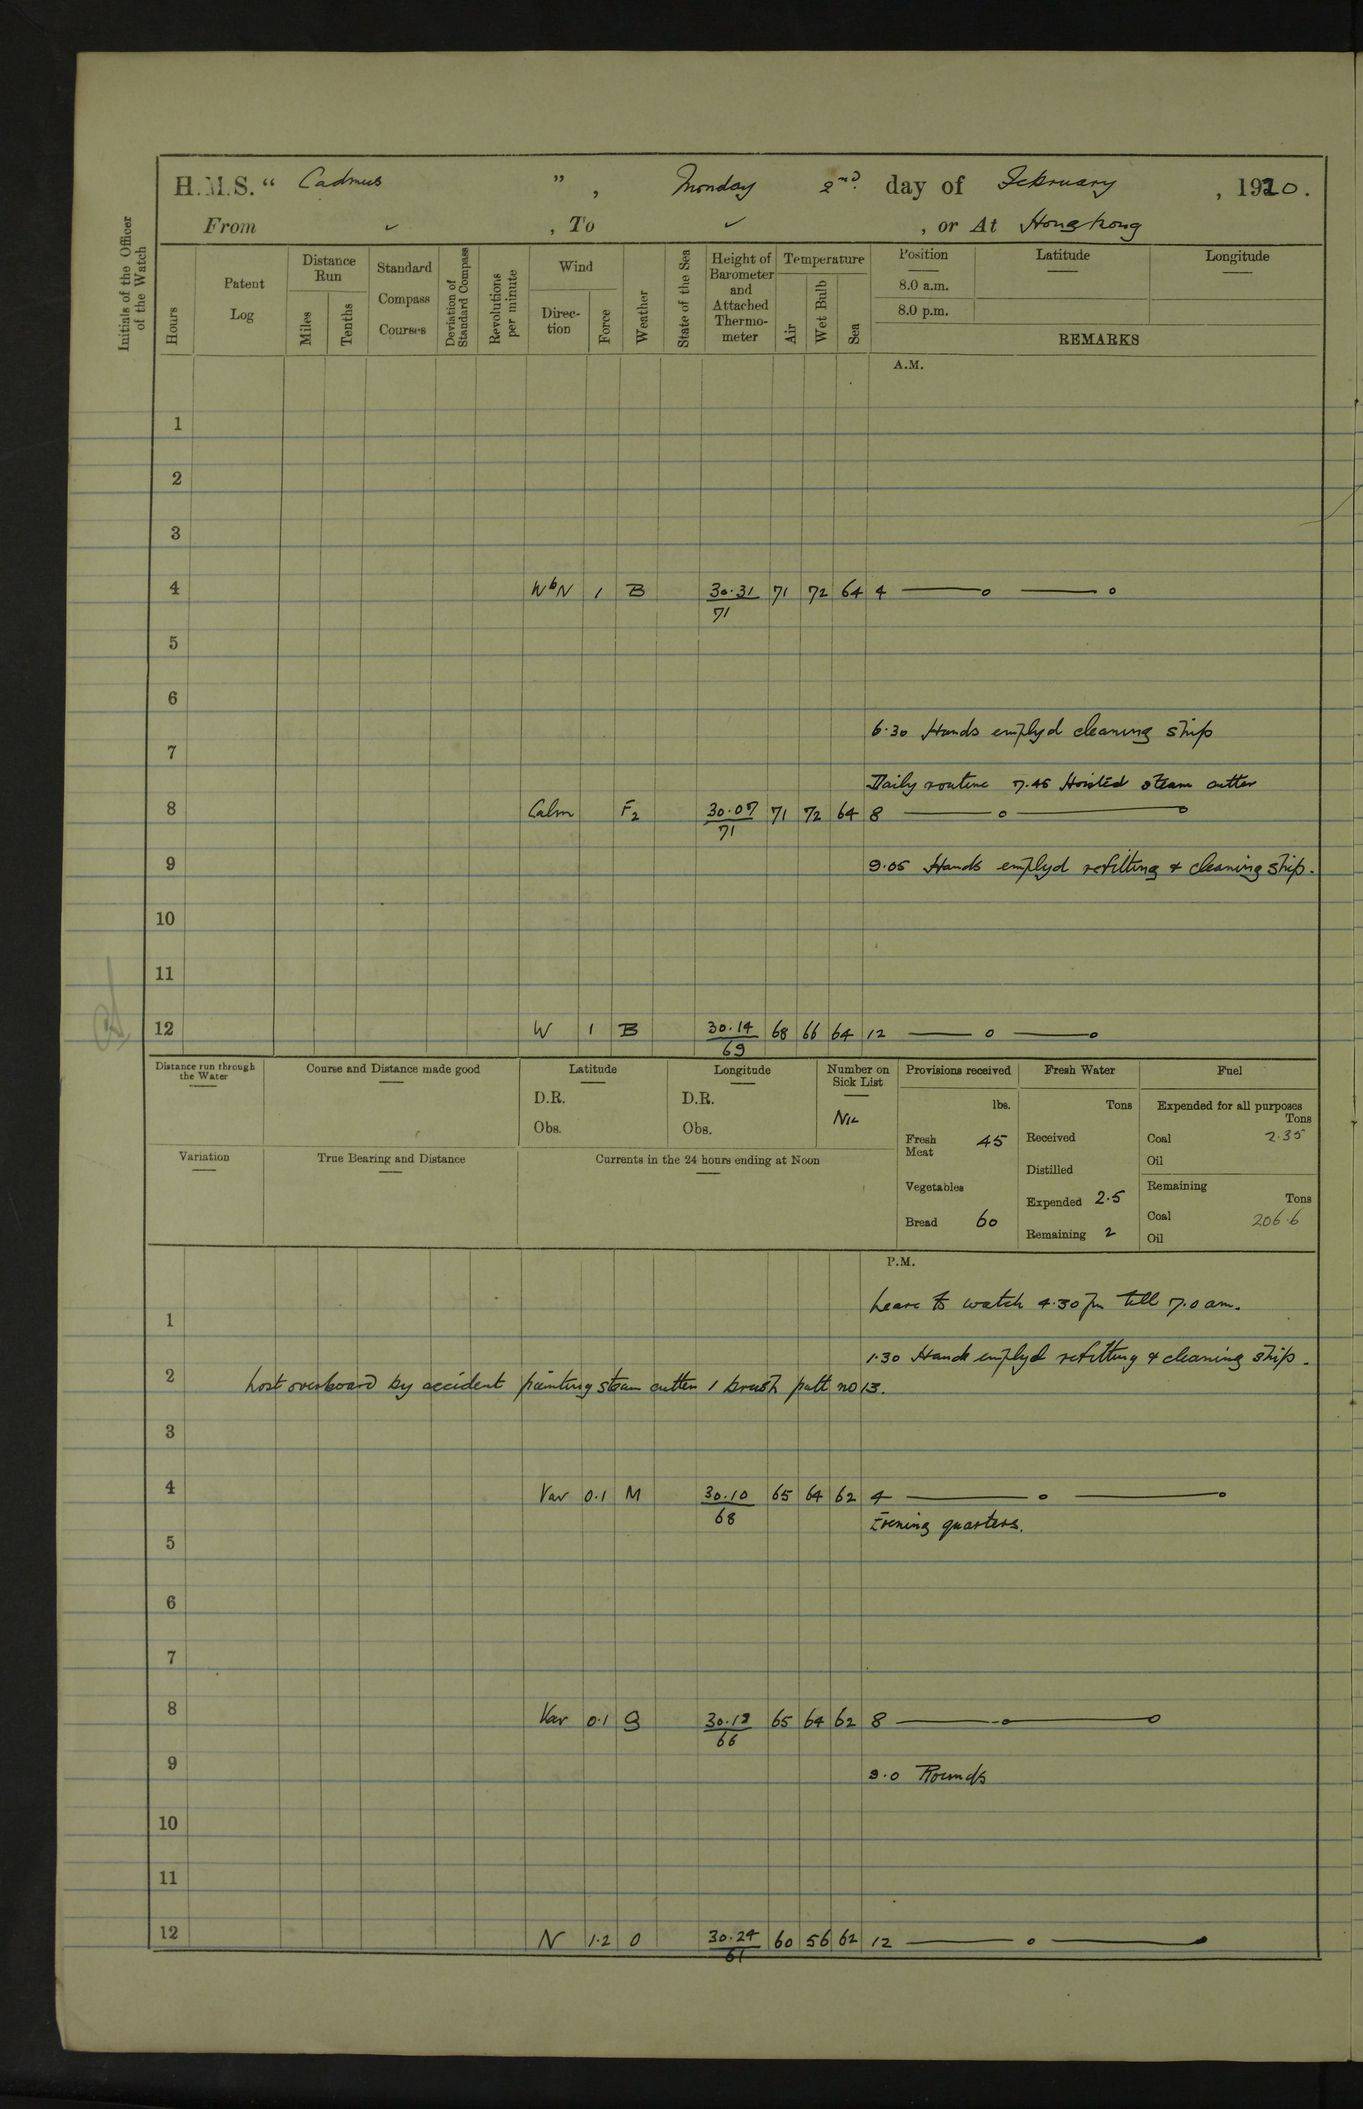 H.M.S. “ Cadmus ” , Monday 2nd. day of February , 1920.
From ✓ , To ✓ , or At Hongkong
Initials of the Officer of the Watch
Hours
Patent Log
Distance Run
Miles
Tenths
Standard Compass Courses
Deviation of Standard Compass
Revolutions per minute
Wind
Direc-tion
Force
Weather
State of the Sea
Height of Barometer and Attached Thermo-meter
Temperature
Air
Wet Bulb
Sea
Position
8.0 a.m.
8.0 p.m.
Latitude
Longitude
REMARKS
A.M.
1
2
3
4 WbN 1 B 30.31 71 72 64 4 ——o ——o
71
5
6
6.30 Hands emplyd cleaning ship
7
Daily routine 7.45 Hoisted steam cutter
8 Calm F2 30.07 71 72 64 8 ——o ——o
71
9 9.05 Hands emplyd refitting & cleaning ship.
10
11
12 W 1 B 30.14 68 66 64 12 ——o ——o
69
Distance run through the Water
Course and Distance made good
Latitude
D.R.
Obs.
Longitude
D.R.
Obs.
Number on Sick List
NIL
Provisions received
lbs.
Fresh Meat 45
Vegetables
Bread 60
Fresh Water
Tons
Received
Distilled
Expended 2.5
Remaining 2
Fuel
Expended for all purposes
Tons
Coal 2.35
Oil
Remaining
Tons
Coal 206.6
Oil
Variation
True Bearing and Distance
Currents in the 24 hours ending at Noon
P.M.
Leave to watch 4.30 pm till 7.0 am.
1
1.30 Hands emplyd refitting & cleaning ship.
2 Lost overboard by accident painting steam cutter 1 brush patt no 13.
3
4 Var 0.1 M 30.10 65 64 62 4 ——o ——o
68
Evening quarters.
5
6
7
8 Var 0.1 G 30.12 65 64 62 8 ——o ——o
66
9 9.0 Rounds
10
11
12 N 1.2 O 30.24 60 56 62 12 ——o ——o
61